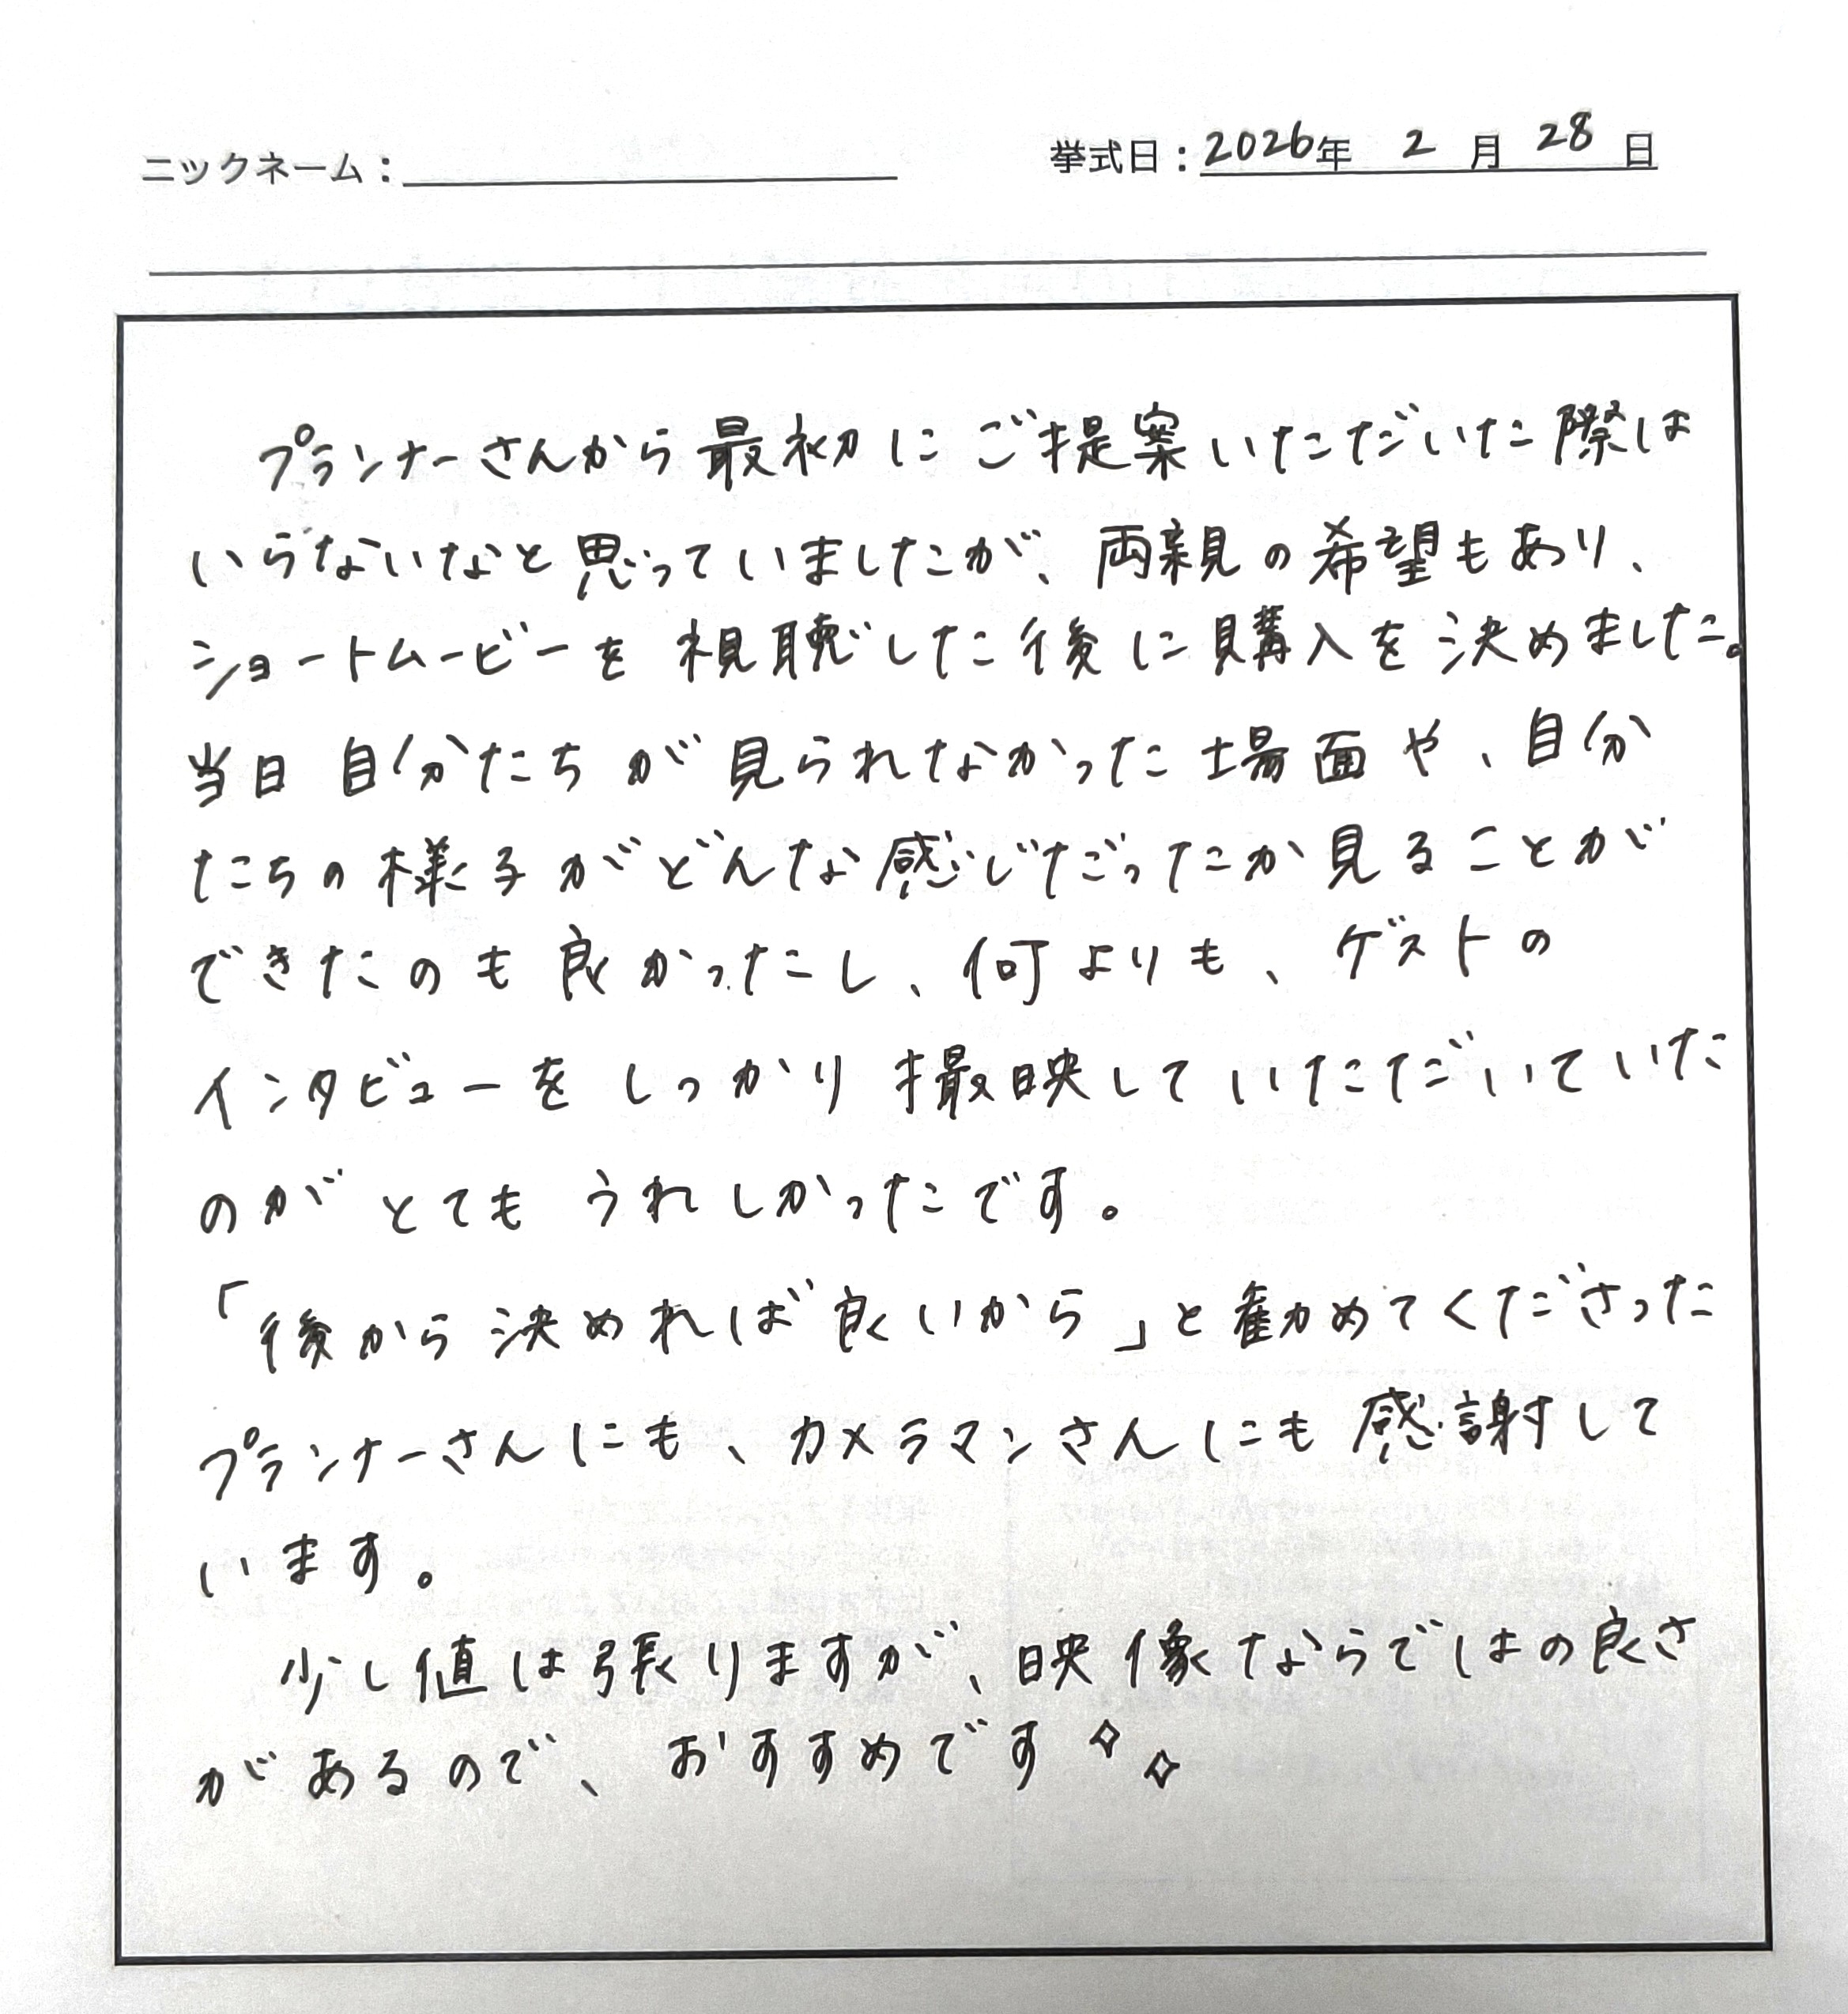 ニックネーム：
挙式日：2026年 2月 28日
プランナーさんから最初にご提案いただいた際は
いらないなと思っていましたが、両親の希望もあり、
ショートムービーを視聴した後に購入を決めました。
当日自分たちが見られなかった場面や、自分
たちの様子がどんな感じだったか見ることが
できたのも良かったし、何よりも、ゲストの
インタビューをしっかり撮映していただいていた
のがとてもうれしかったです。
「後から決めれば良いから」と勧めてくださった
プランナーさんにも、カメラマンさんにも感謝して
います。
少し値は張りますが、映像ならではの良さ
があるので、おすすめです✧✧